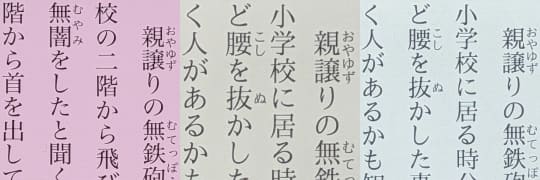 親譲りの無鉄砲
校の二階から飛び
無闇をしたと聞く
階から首を出して
親譲りの無鉄
小学校に居る時
ど腰を抜かした
く人があるかも
親譲りの無鉄砲
小学校に居る時分
ど腰を抜かした事
く人があるかも知